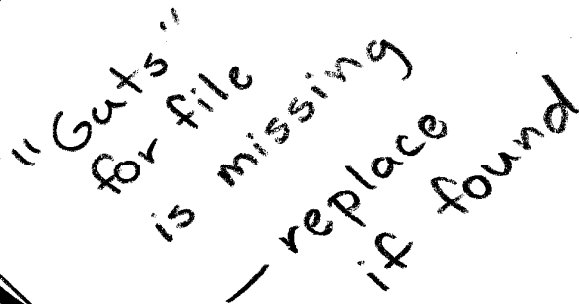 "Guts"
for file
is missing
— replace
if found